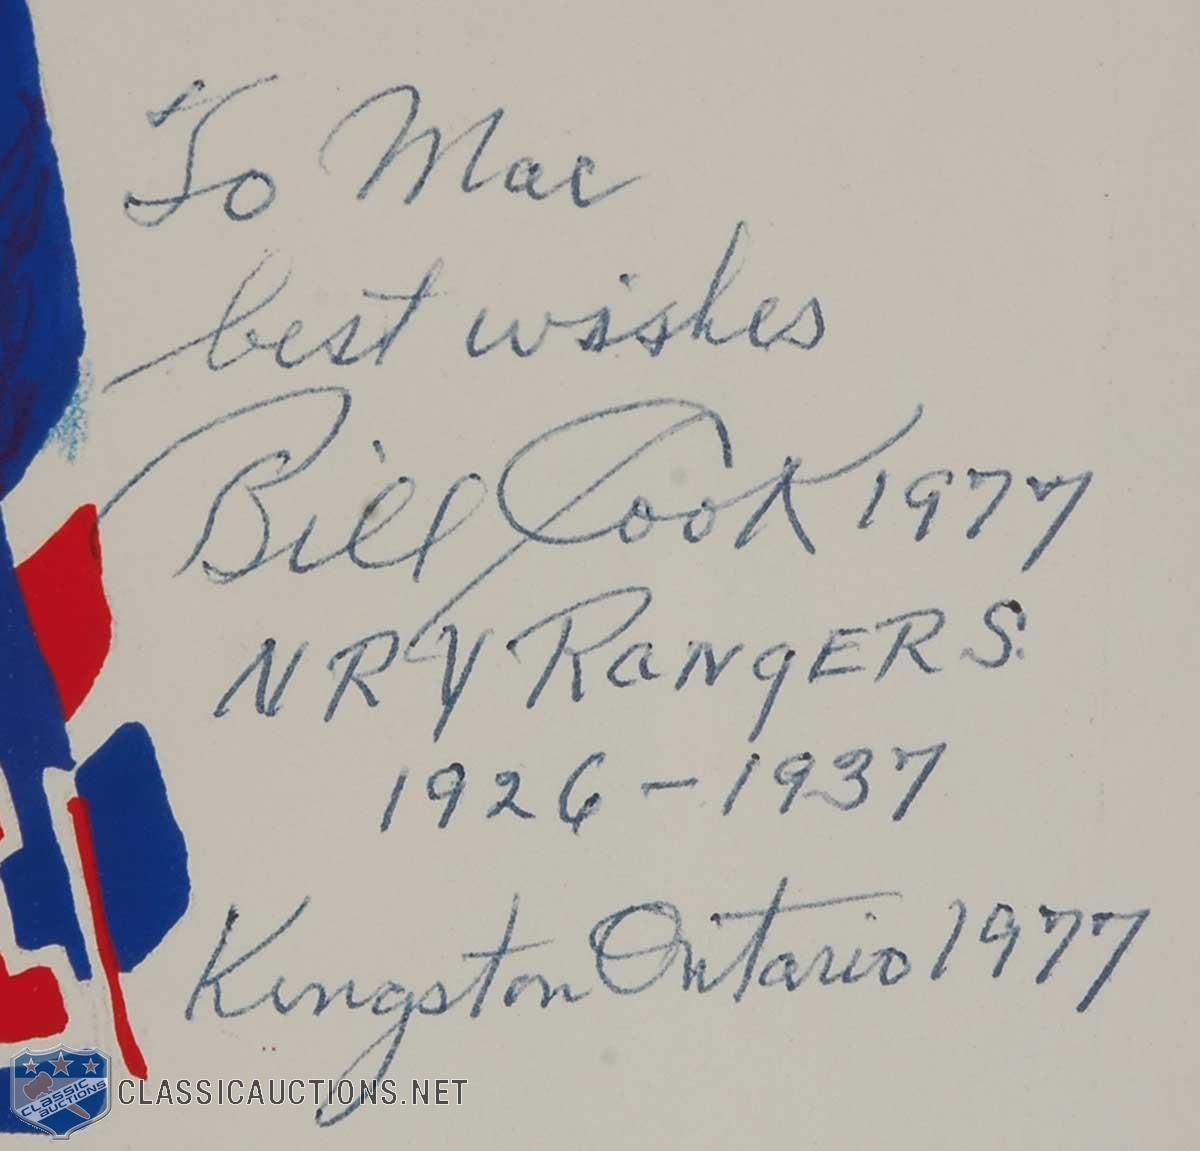 To Mac
best wishes
Bill Cook 1977
NRY RangERS.
1926 - 1937
Kingston Ontario 1977
CLASSIC AUCTIONS
CLASSICAUCTIONS.NET